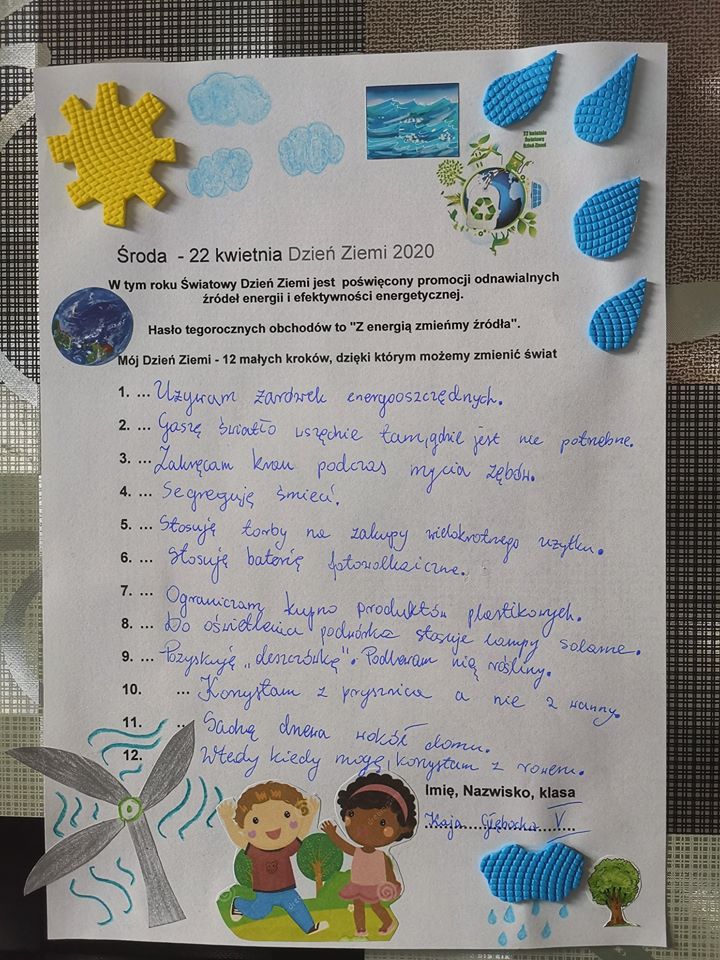 22 kwietnia
Światowy
Dzień Ziemi
Środa - 22 kwietnia Dzień Ziemi 2020
W tym roku Światowy Dzień Ziemi jest poświęcony promocji odnawialnych
źródeł energii i efektywności energetycznej.
Hasło tegorocznych obchodów to "Z energią zmieńmy źródła".
Mój Dzień Ziemi - 12 małych kroków, dzięki którym możemy zmienić świat
1. ... Używam żarówek energooszczędnych.
2. ... Gaszę światło wszędzie tam, gdzie jest nie potrzebne.
3. ... Zakręcam kran podczas mycia zębów.
4. ... Segreguję śmieci.
5. ... Stosuję torby na zakupy wielokrotnego użytku.
6. ... Stosuję baterię fotowoltaiczne.
7. ... Ograniczam kupno produktów plastikowych.
8. ... Do oświetlenia podwórka stosuje lampy solarne.
9. ... Pozyskuję „deszczówkę". Podlewam nią rośliny.
10. ... Korzystam z prysznica a nie z wanny.
11. ... Sadzę drzewa wokół domu.
12. Wtedy kiedy mogę, korzystam z roweru.
Imię, Nazwisko, klasa
Kaja Głębocka V